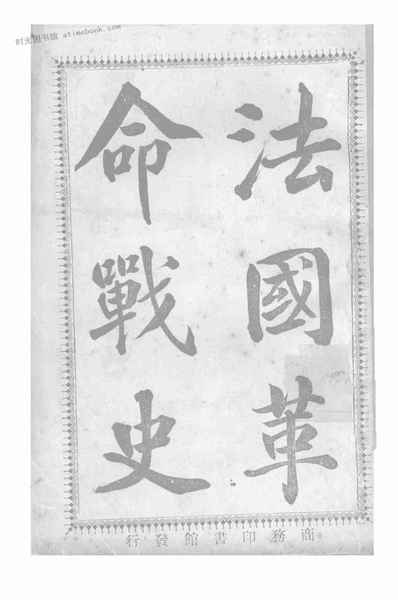 时光图书馆 atimebook.com
法國革
命戰史
商務印書館發行